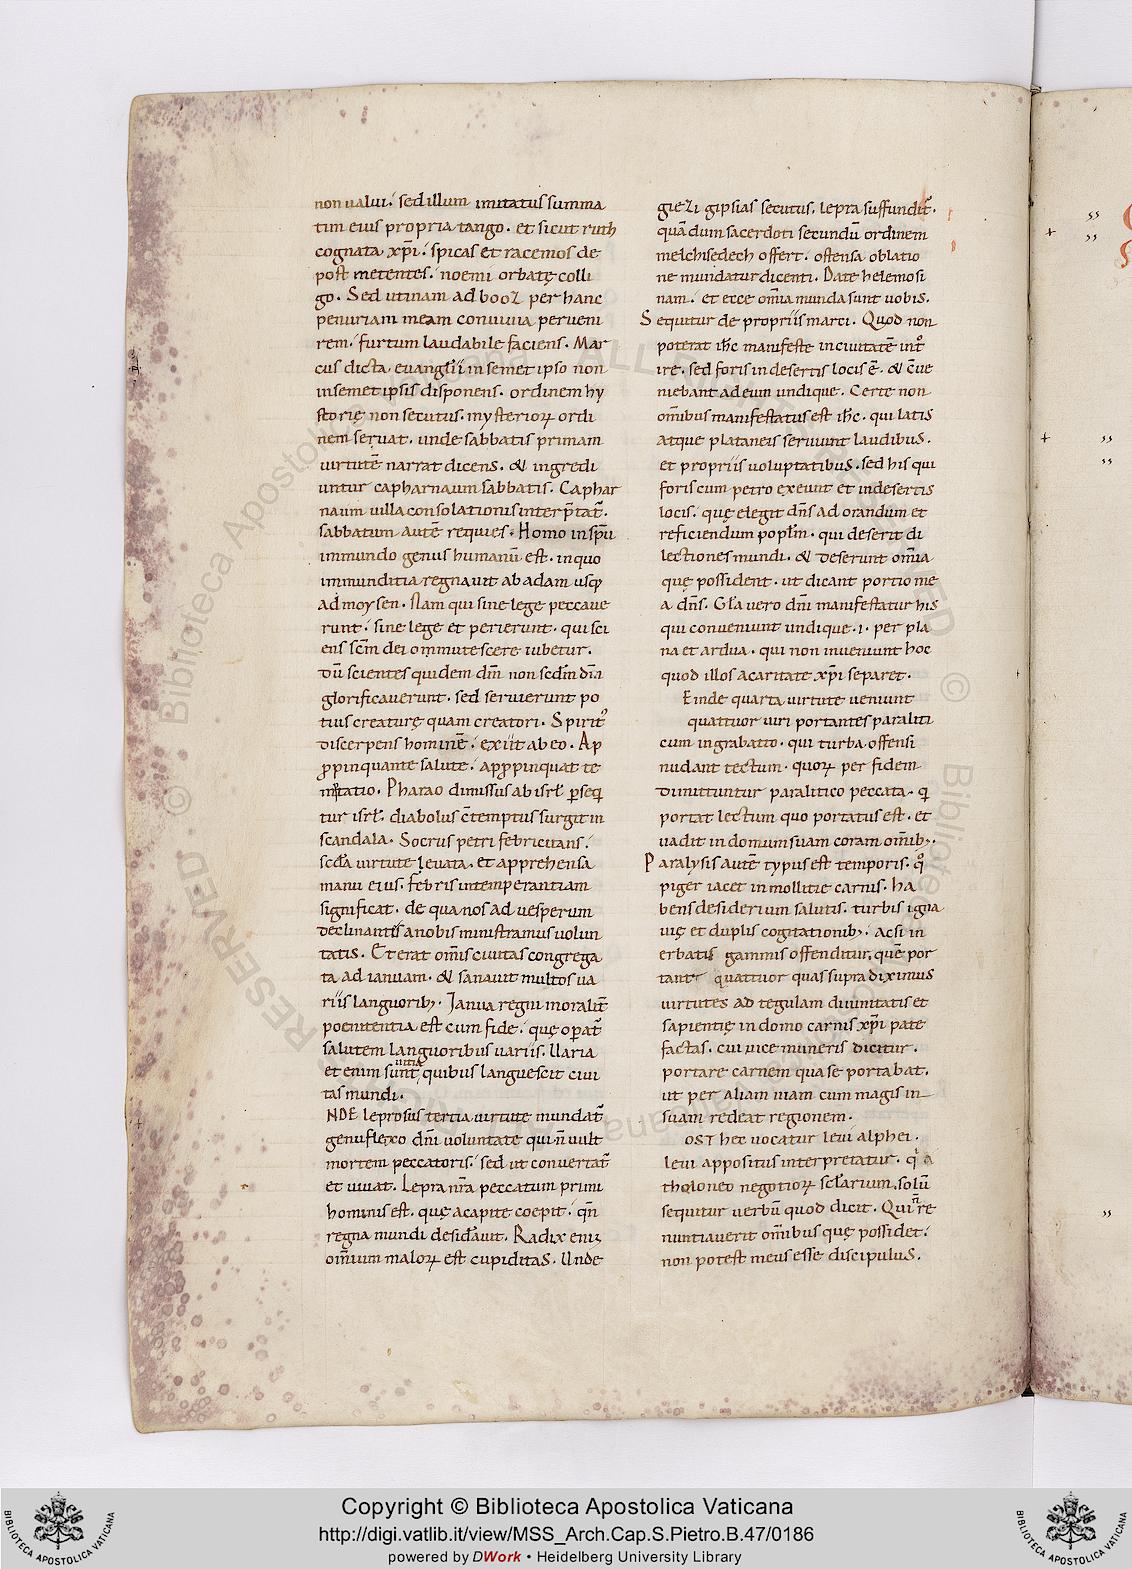 non ualui. sed illum imitatus summa
tim eius propria tango. et sicut ruth
cognata xp̄i. spicas et racemos de
post metentes. noemi orbatę colli
go. Sed utinam ad booz per hanc
penuriam meam conuiuia perueni
rem. furtum laudabile faciens. Mar
cus dicta euangl̄ii in semet ipso non
in semet ipsis disponens. ordinem hy
storię non secutus. mysterioꝝ ordi
nem seruat. unde sabbatis primam
uirtutē narrat dicens. & ingredi
untur capharnaum sabbatis. Caphar
naum uilla consolationis interp̄tat̄.
sabbatum autē requies. Homo in sp̄u
immundo genus humanū est. in quo
immunditia regnauit ab adam usq;
ad moysen. Nam qui sine lege peccaue
runt. sine lege et perierunt. qui sci
ens sc̄m dei ommutescere iubetur.
Dū scientes quidem dm̄ non sc̄dm dm̄
glorificauerunt. sed seruierunt po
tius creaturę quam creatori. Spirit᾽
discerpens hominē. exiit ab eo. Ap
ꝓpinquante salute. apꝓpinquat te
mptatio. Pharao dimissus ab isrl̄ ꝑseq
tur isrl̄. diabolus c̄temptus surgit in
scandala. Socrus petri febricitans.
sc̄da uirtute leuata. et apprehensa
manu eius. febris intemperantiam
significat. de qua nos ad uesperum
declinantis a nobis ministramus uolun
tatis. Et erat omīs ciuitas congrega
ta ad ianuam. & sanauit multos ua
riis languorib;. Ianua regni moralit̄
poenitentia est cum fide. quę oꝑat̄
salutem languoribus uariis. Uaria
et enim sunt uitia quibus languescit ciui
tas mundi.
NDE leprosus tertia uirtute mundat̄
genuflexo dn̄i uoluntate qui n̄ uult
mortem peccatoris. sed ut conuertat̄
et uiuat. Lepra nr̄a peccatum primi
hominis est. quę a capite coepit. qn̄
regna mundi desid̄auit. Radix enim
omīum maloꝝ est cupiditas. Unde
giezi gipsias secutus. lepra suffundit̄.
quā dum sacerdoti secundū ordinem
melchisedech offert. ostensa oblatio
ne mundatur dicenti. Date helemosi
nam. et ecce om̄ia munda sunt uobis.
Sequitur de propriis marci. Quod non
poterat ih̄c manifeste in ciuitatē int᾽
ire. sed foris in desertis locis ē. & c̄ue
niebant ad eum undique. Certe non
om̄ibus manifestatus est ih̄c. qui latis
atque plataneis seruiunt laudibus.
et propriis uoluptatibus. sed his qui
foris cum petro exeunt et in desertis
locis. quę elegit dn̄s ad orandum et
reficiendum popl̄m. qui deserit di
lectiones mundi. & deserunt om̄ia
quę possident. ut dicant portio me
a dn̄s. Gl̄a uero dn̄i manifestatur his
qui conueniunt undique. i. per pla
na et ardua. qui non inueniunt hoc
quod illos a caritate xp̄i separet.
Einde quarta uirtute ueniunt
quattuor uiri portantes paraliti
cum in grabatto. qui turba offensi
nudant tectum. quoꝝ per fidem
dimittuntur paralitico peccata. q
portat lectum quo portatus est. et
uadit in domum suam coram om̄ib;.
Paralysis autē typus est temporis. q᾽
piger iacet in mollitie carnis. ha
bens desiderium salutis. turbis igna
uię et duplis cogitationib;. acsi in
erbatis gammis offenditur. quē por
tant quattuor quas supra diximus
uirtutes ad tegulam diuinitatis et
sapientię in domo carnis xp̄i pate
factas. cui uice muneris dicitur.
portare carnem qua se portabat.
ut per aliam uiam cum magis in
suam redeat regionem.
OST hec uocatur leui alphei.
leui appositus interpretatur. q a
tholoneo negotioꝝ scl̄arium. solū
sequitur uerbū quod dicit. Qui n̄ re
nuntiauerit om̄ibus quę possidet.
non potest meus esse discipulus.
Copyright © Biblioteca Apostolica Vaticana
http://digi.vatlib.it/view/MSS_Arch.Cap.S.Pietro.B.47/0186
powered by DWork • Heidelberg University Library